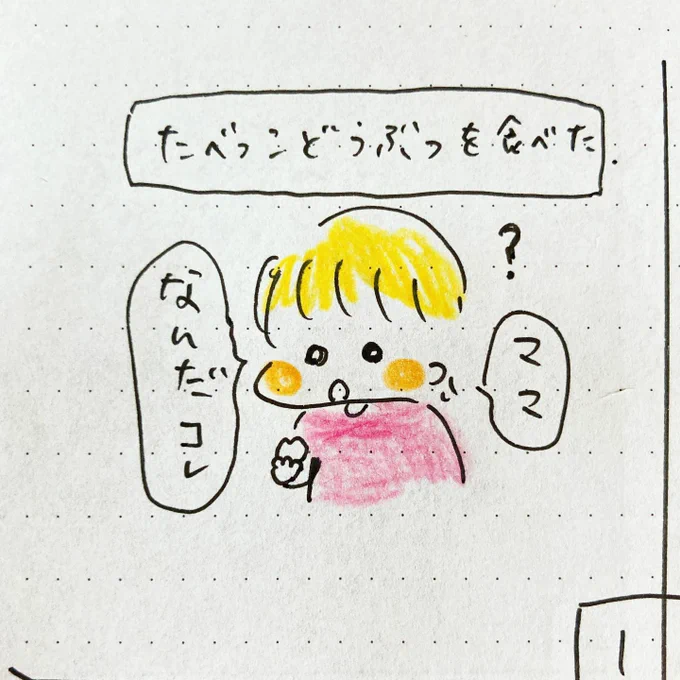 たべっこどうぶつを食べた.
?
ママ
なんだコレ
1